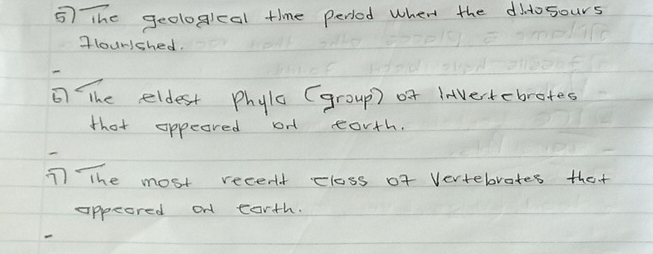 5) The geological time period when the dinosours
flourished.
-
6) The eldest phyla (group) of invertebrates
that appeared on earth.
-
7) The most recent class of vertebrates that
appeared on earth.
-